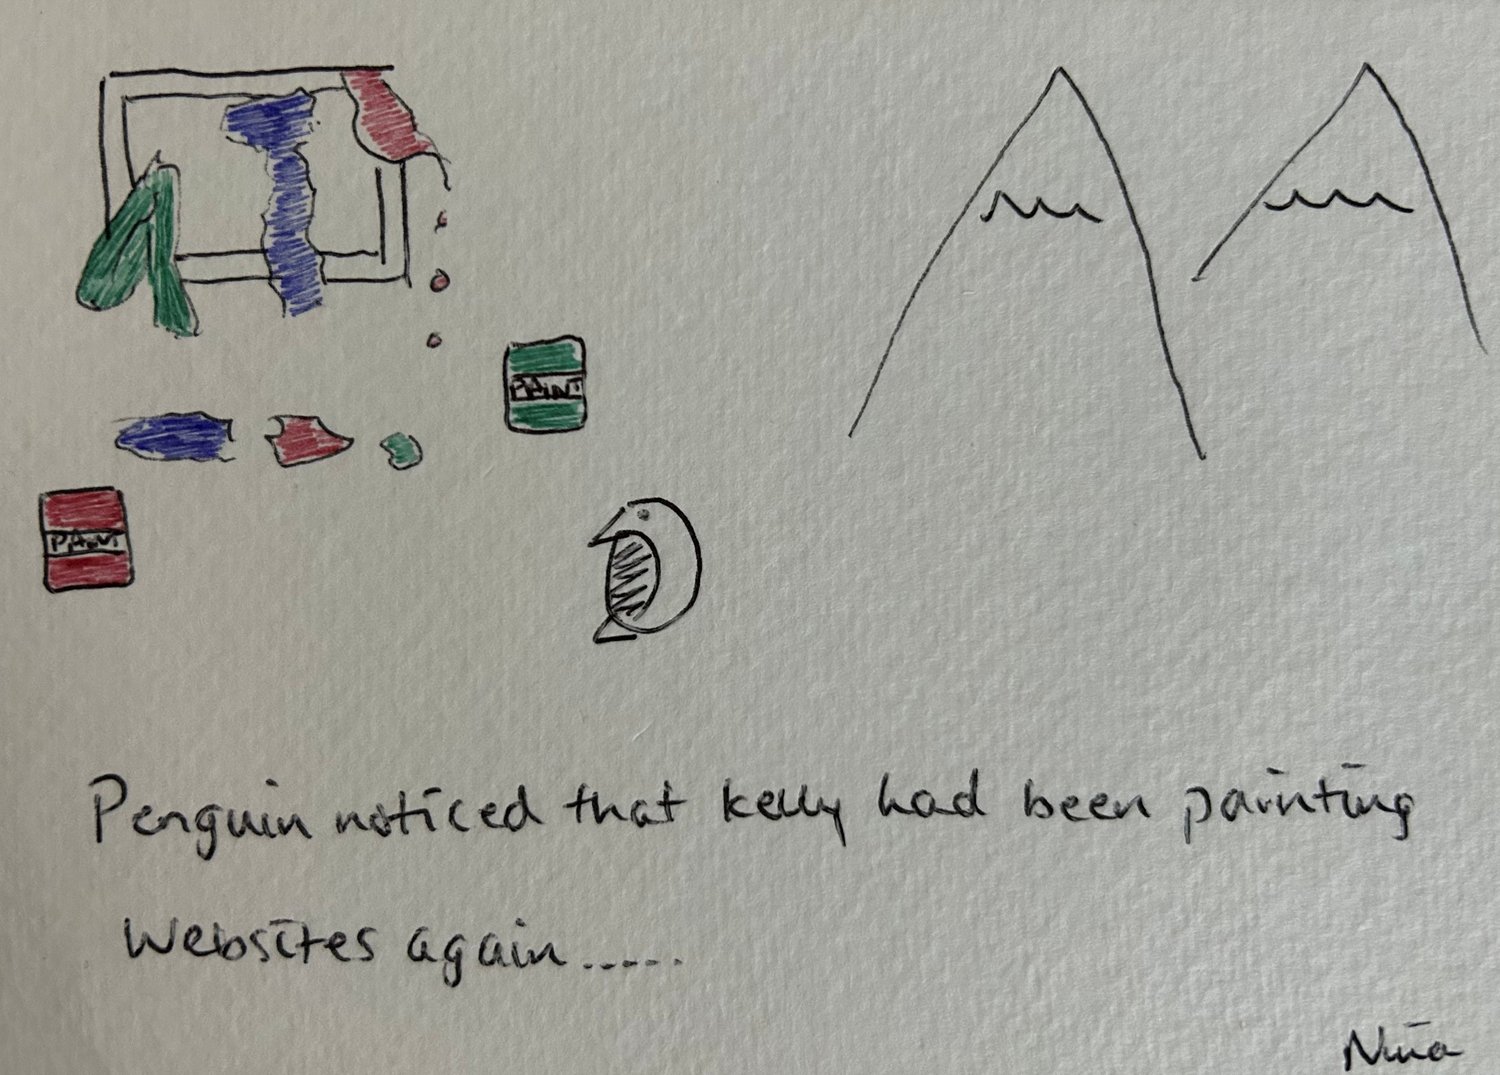 PAINT
PAINT
Penguin noticed that kelly had been painting
Websites again.....
Nina